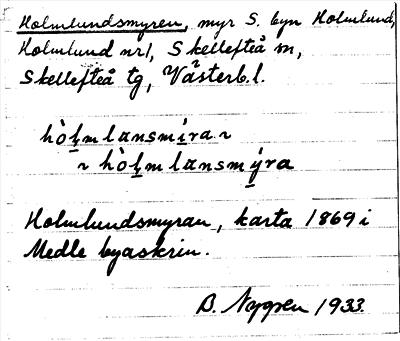 Holmlundsmyren, myr S. byn Holmlund,
Holmlund nr1, Skellefteå sn,
Skellefteå tg, Västerb. l.
hòl̥mlansmíra ~
~ hòl̥mlansmýra
Holmlundsmyran, karta 1869 i
Medle byaskrin.
B. Nygren 1933.